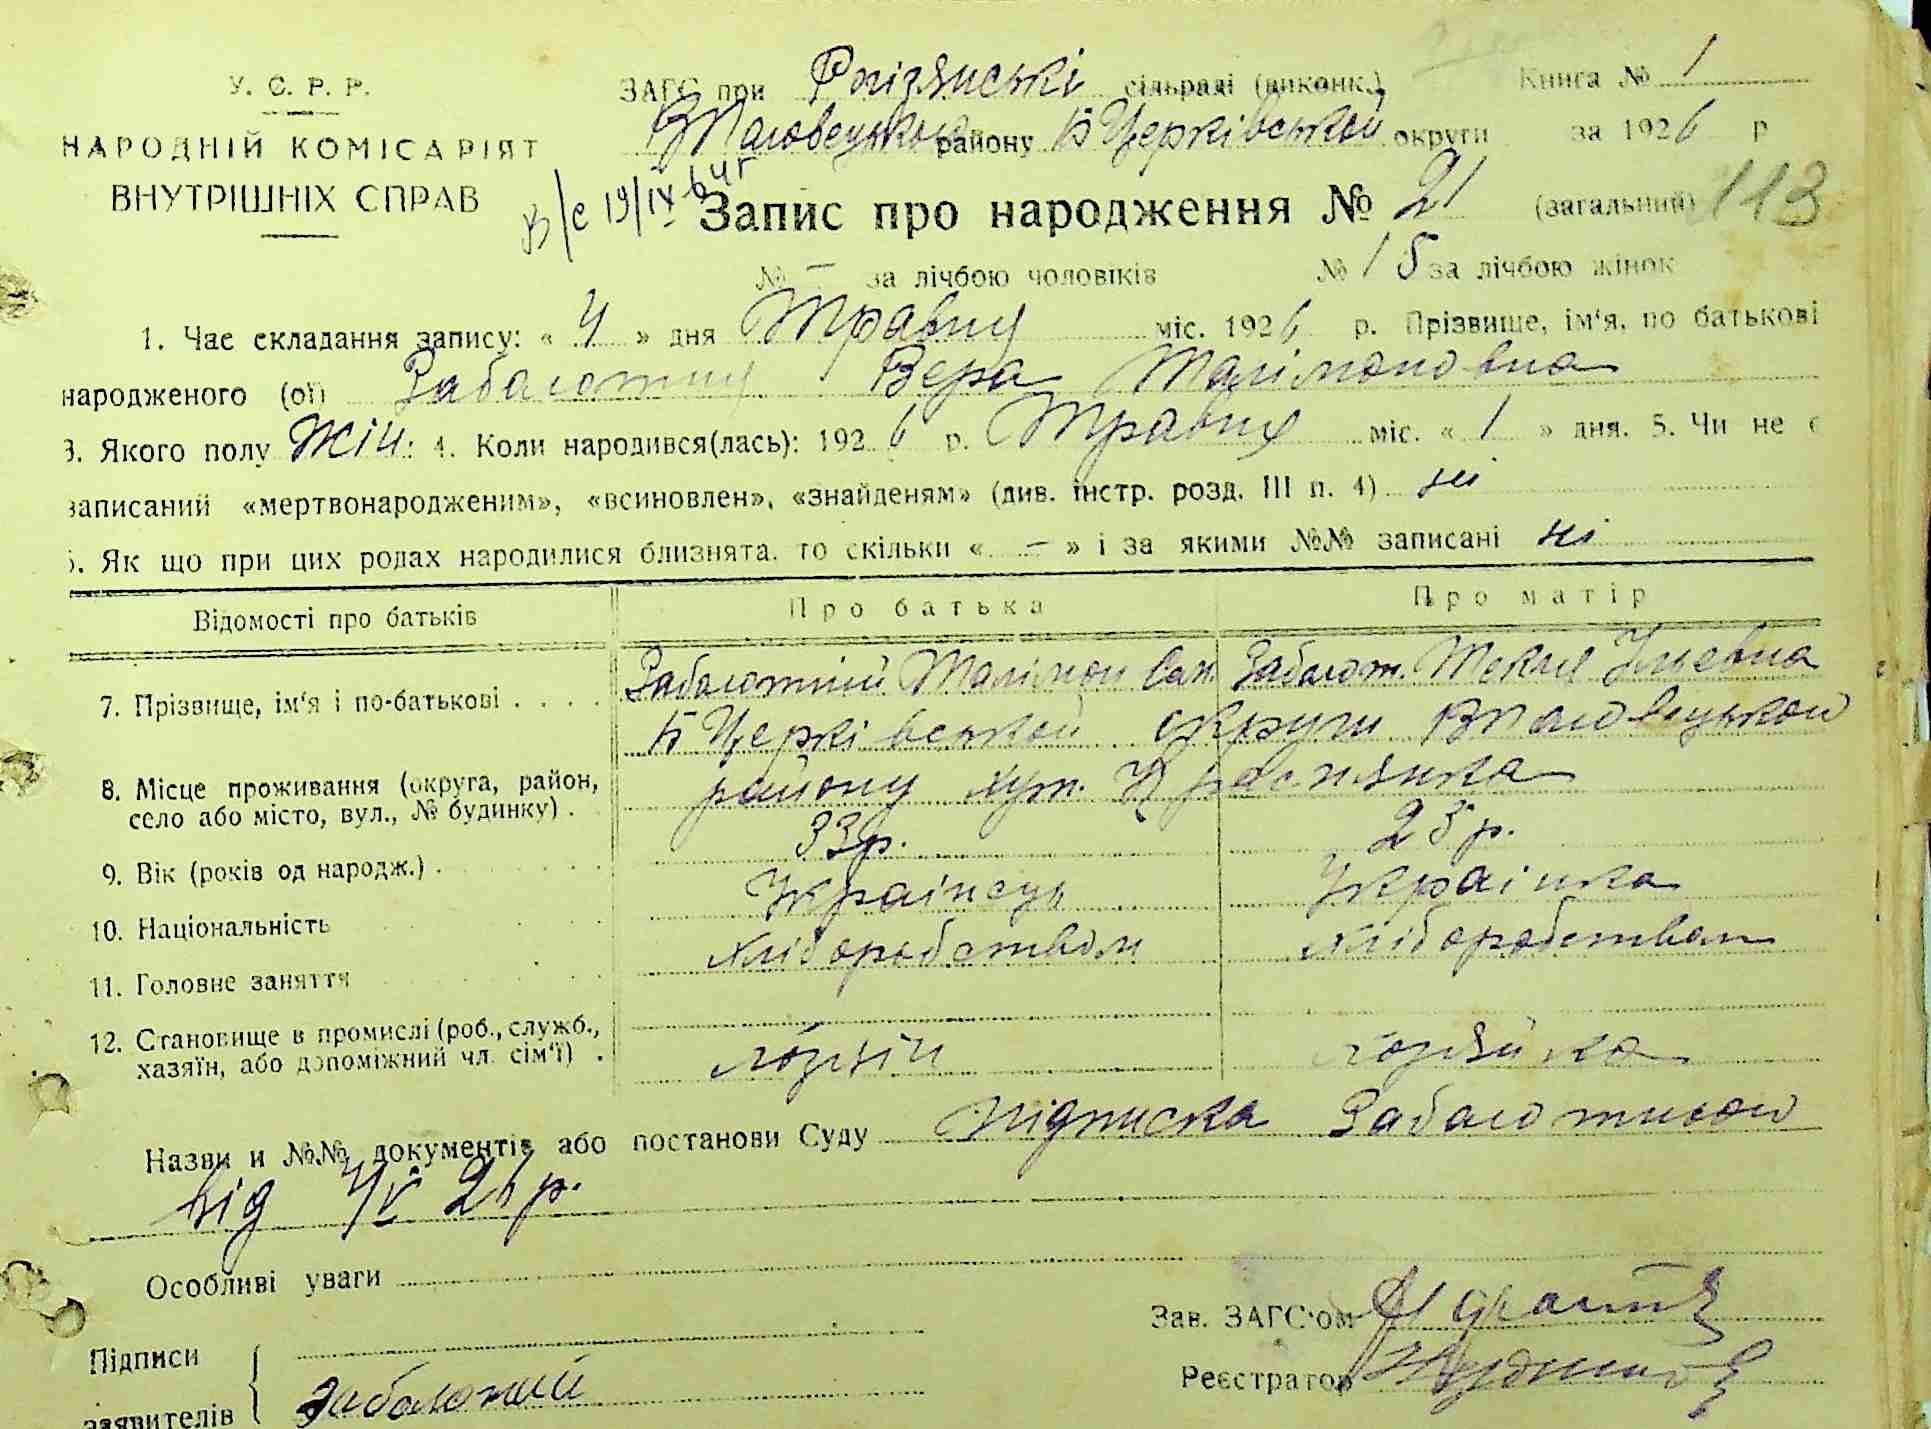 У. С. Р. Р.
НАРОДНІЙ КОМІСАРІЯТ
ВНУТРІШНІХ СПРАВ
ЗАГС при сільраді (виконк.)
району Б Церківської округи
Книга № 1
за 1926 р
В/с 19/IX 64г
Запис про народження № 21 (загальний) 113
№ – за лічбою чоловіків № 15 за лічбою жінок
1. Час складання запису: « 4 » дня Травня міс. 1926 р. Прізвище, ім'я, по батькові
народженого (ої) Заболотня Вера Талімоновна
3. Якого полу Жін: 4. Коли народився(лась): 1926 р. Травня міс. « 1 » дня. 5. Чи не є
записаний «мертвонародженим», «всиновлен», «знайденям» (див. інстр. розд. III п. 4) ні
6. Як що при цих родах народилися близнята, то скільки « – » і за якими №№ записані ні
Відомості про батьків
Про батька
Про матір
7. Прізвище, ім'я і по-батькові . . . . Заболотній Талімон Заболот. Текля
Б Церківської округи
8. Місце проживання (округа, район, району хут.
село або місто, вул., № будинку) .
9. Вік (років од народж.) . 33р. 25р.
10. Національність Українець Українка
11. Головне заняття хліборобством хліборобством
12. Становище в промислі (роб., служб.,
хазяїн, або допоміжний чл. сім'ї) . хозяїн хозяйка
Назви и №№ документів або постанови Суду підписка Заболотньой
від 4/V 26 р.
Особливі уваги
Зав. ЗАГС'ом
Підписи
Реєстратор
заявителів Заболотній